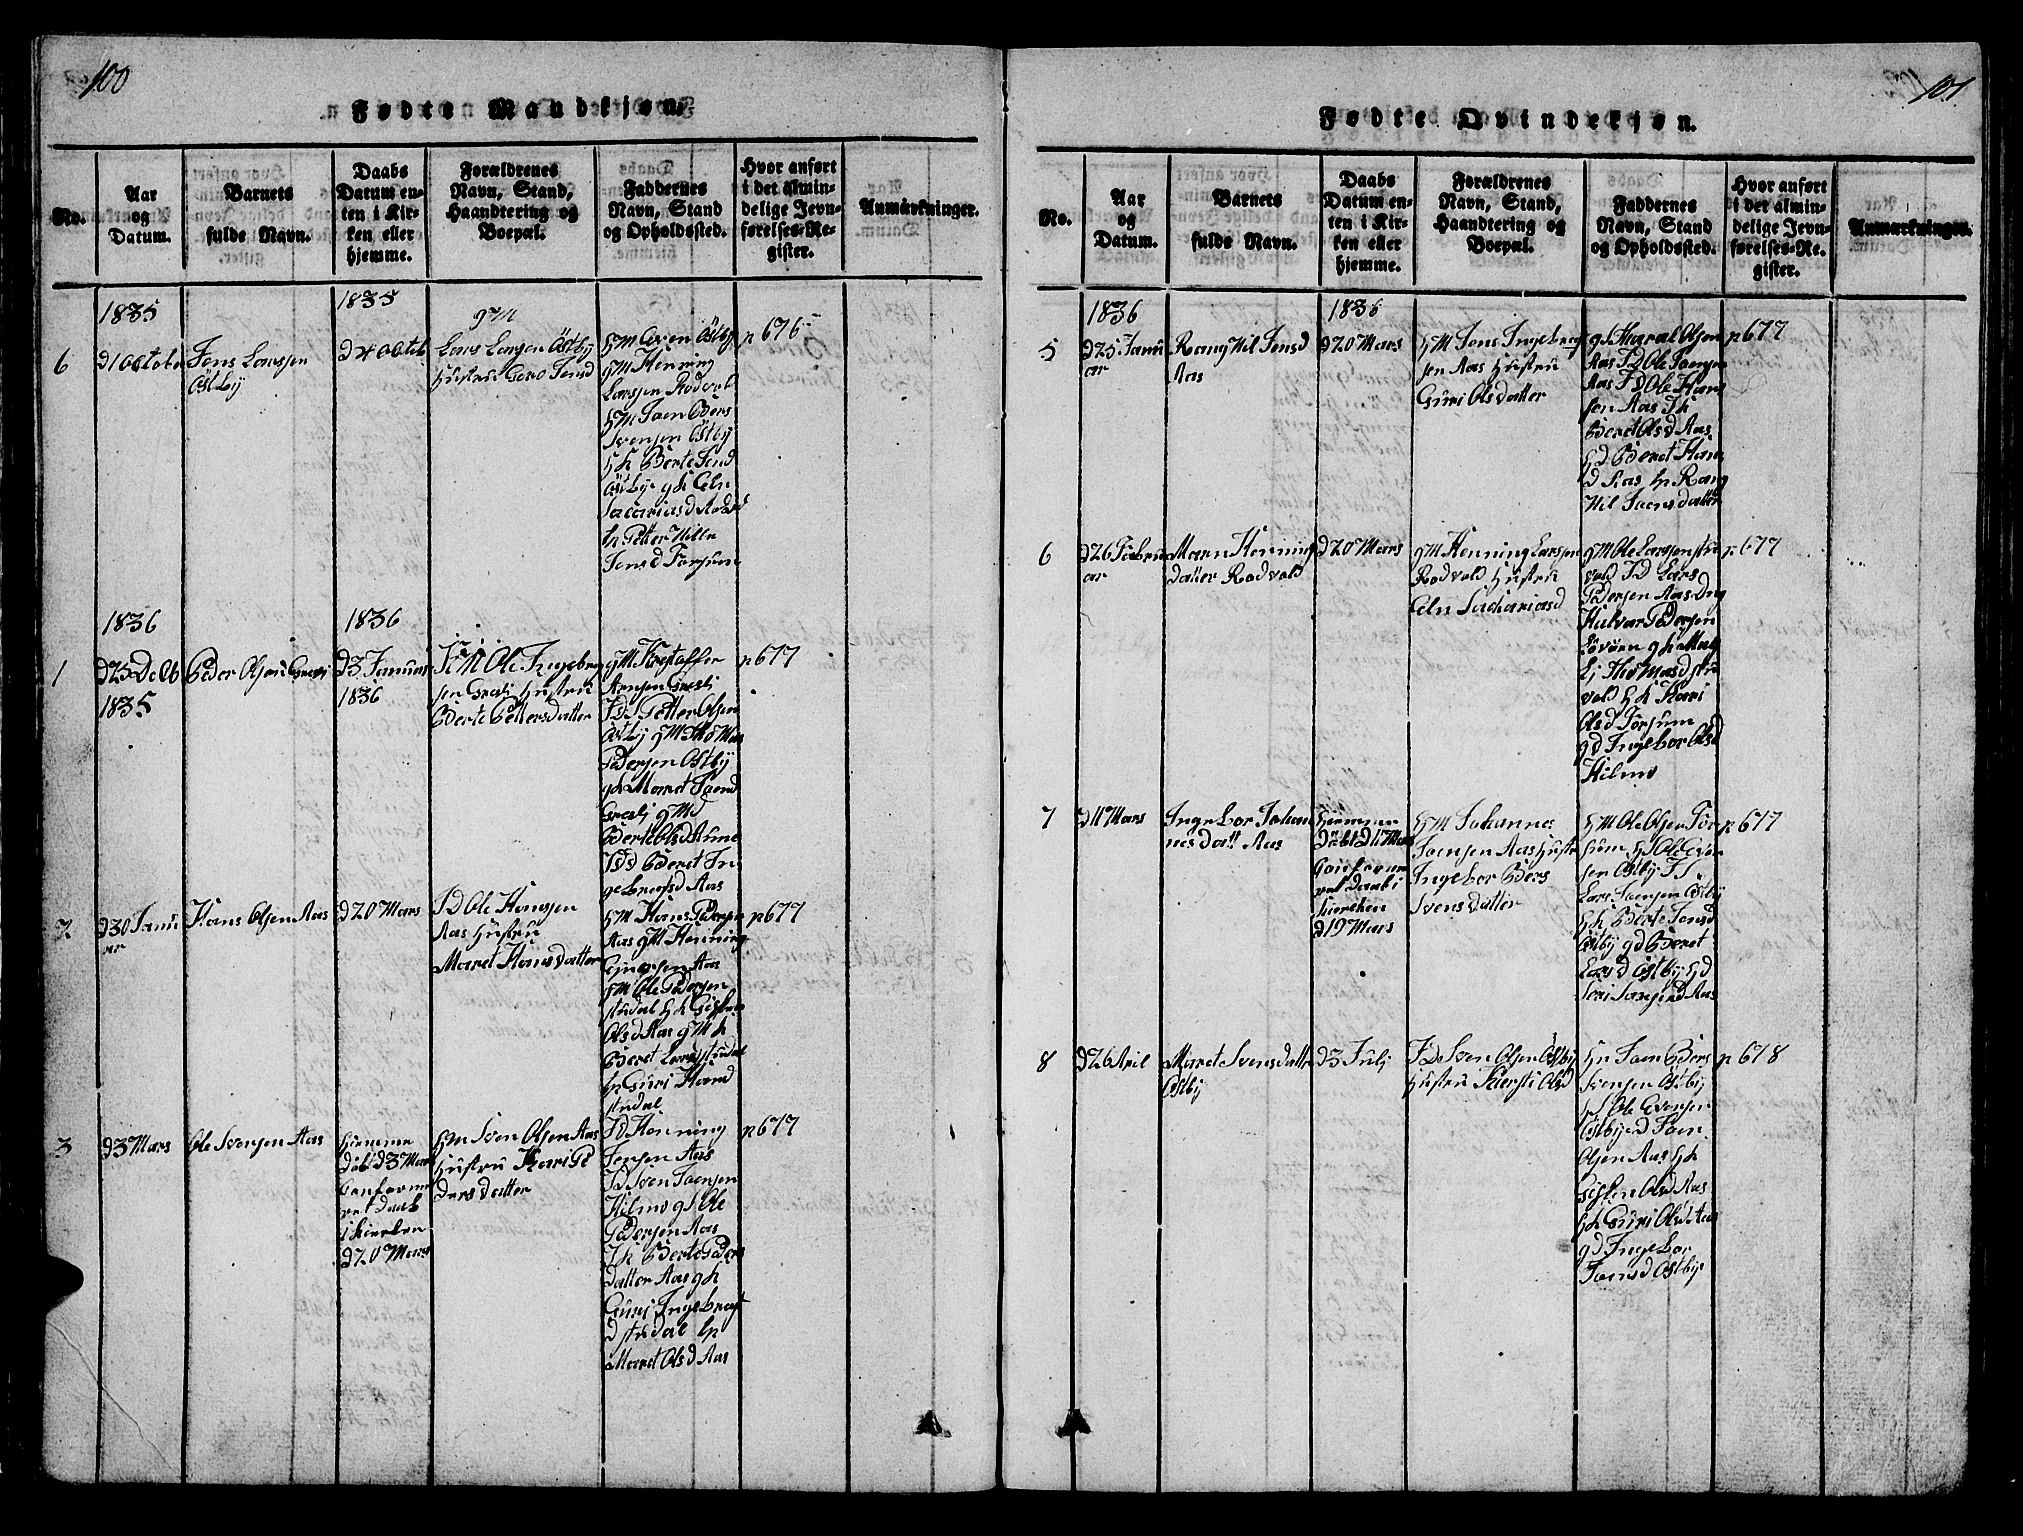 100
Fødte Mandkjøn.
No.
Aar
og
Datum.
Barnets
fulde Navn.
Daabs
Datum en-
ten i Kir-
ken eller
hjemme.
Forældrenes
Navn, Stand,
Haandtering og
Boepæl.
Faddernes
Navn, Stand
og Opholdssted.
Hvor anført
i det almin-
delige Jevn-
førelses-Re-
gister.
Anmärkninger.
1835
1835
6
d1 October
Jens Larssen
Östby
d4 Octob
gM
Lars Larsen Östby
Hustru Goro Jensd
gM Henning
Larssen Rodvold
Svensen Östby
gk Berte Jensd
Östbye gk Eln
Sacariasd
Jensd
1836
1836
1
d25 De Cb
1835
Peder Olsen Græsli
d3 Januar
1836
Ole Ingebrig
sen Græsli Hustru
Berte Pettersdatter
gM Kristaffer
Arnsen Græsli
JD Petter Olsen
Östby gM Thomas
Pedersen Östby
gk Maret Joend
Græsli gMd
Berte Olsd
JD Beret In
gebregsd Aas
2
d30 Janu
ar
Hans Olsen Aas
d20 Mars
JD Ole Hansen
Aas Hustru
Maret Hansdatter
gM Hans Pedersen
Aas gM Henning
Aas
gM Ole Pedersen
studal gk
Olsd Aas gMk
Beret Larsd studal
hp Guri Hansd
studal
3
d3 Mars
Ole Svensen Aas
hiemme
döbt d3 Mars
Conferme
ret daab
i kirken
d20 Mars
gm Sven Olsen Aas
Hustru Kari Pe
dersdatter
JD Henning
Jensen Aas
JD Sven Joensen
Hilmo gd Ole
Pedersen Aas
Jk Berte Peders
datter Aas gk
Guri Ingebregt
d studal hp
Maret Olsd Aas
p 676
p 677
p 677
p 677
101
Fødte Qvindekjøn.
No.
Aar
og
Datum.
Barnets
fulde Navn.
Daabs
Datum en-
ten i Kir-
ken eller
hjemme.
Forældrenes
Navn, Stand,
Haandtering og
Boepæl.
Faddernes
Navn, Stand
og Opholdssted.
Hvor anført
i det almin-
delige Jevn-
førelses-Re-
gister.
Anmærkninger.
1836
1836
5
d25 Janu
ar
Ranghil Jensd
Aas
d20 Mars
gM Jens Ingebreg
sen Aas Hustru
Guri Olsdatter
gd Haral Olsen
Aas JD Ole Joensen
Aas JD Ole Han
sen Aas Jk
Beret Olsd Aas
gd Beret Han
d Aas hp Rang
hil Joensdatter
p 677
6
d26 Febru
ar
Maren Henning
datter Rodvold
d20 Mars
gM Henning Larssen
Rodvold Hustru
Eln Sachariasd
gM Ole Larssen stu
vold JD Lars
Pedersen Aas
Halvar Pedersen
Lövöen gk Mag
li Thomasd stu
vold gk Kari
Olsd
gd Ingebor Olsd
Hilmo
p 677
7
d11 Mars
Ingebor Johan
nesdatt Aas
hiemme
döbt d11 Mars
Conferme
ret daab i
kirken
d19 Mars
gM Johannes
Joensen Aas Hustr
Ingebor Bers
Svensdatter
gM Ole Olsen
gd Ole Even
sen Östby
Lars Joensen Östby
gk Berte Jensd
Östby gd Beret
Larsd Östby gd
Aas
p 677
8
d26 April
Maret Svensdatter
Östby
d3 Julj
JD Sven Olsen Östby
Hustru Kiersti Olsd
hr Joen Bers
Svensen Östby
Ole Evensen
Östbye d Joen
Olsen Aas gk
Olsd Aas
gk Guri Olsd Aas
gd Ingebor
Joensd Östbye
p 678